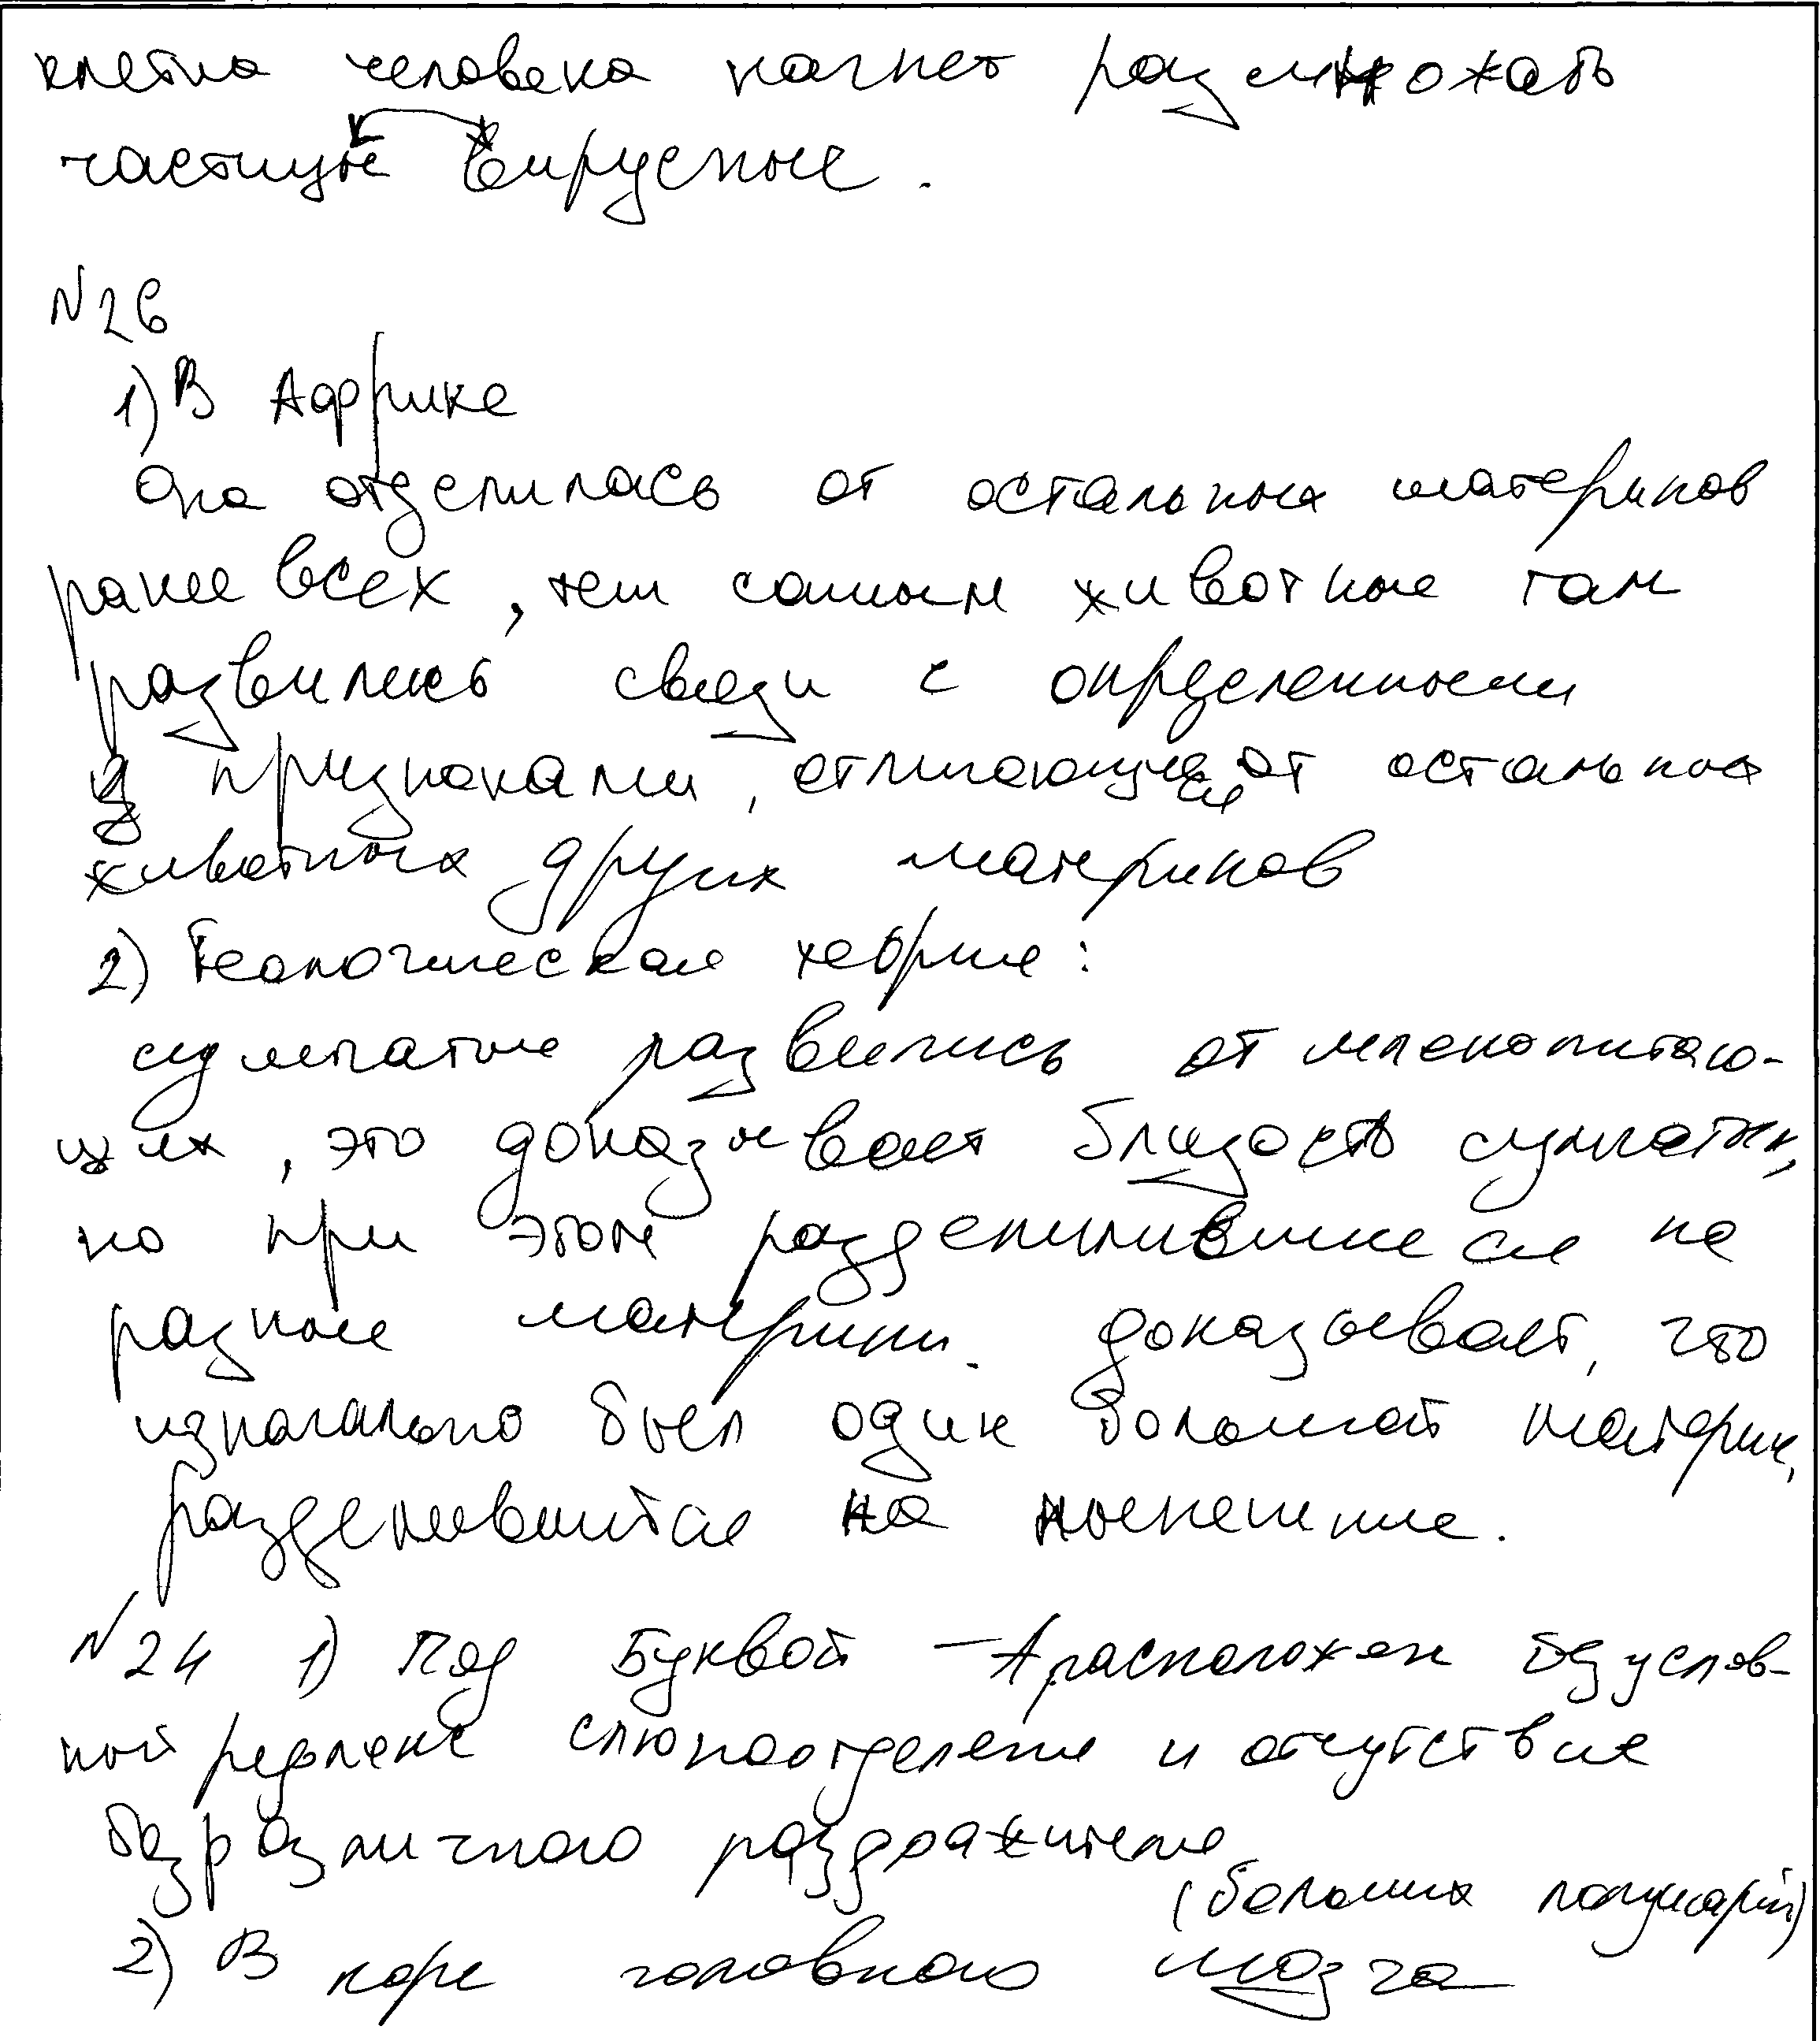 клетка человека начнет размножать
частицы вирусные.
N26
1) В Африке
Она отделилась от остальных материков
ранее всех, тем самым животные там
развились связи с определенными
признаками, отличающиеся от остальных
животных других материков
2) Геологическая теория:
сумчатые развились от млекопитаю-
щих, это доказывает близость сумчатых,
но при этом разделившиеся на
разные материки. доказывает, что
изначально был один большой материк,
разделившийся на нынешние.
N24 1) Под Буквой – А расположен безуслов-
ной рефлекс слюноотделение и отсутствие
безразличного раздражителя
(больших полушарий)
2) В коре головного мозга